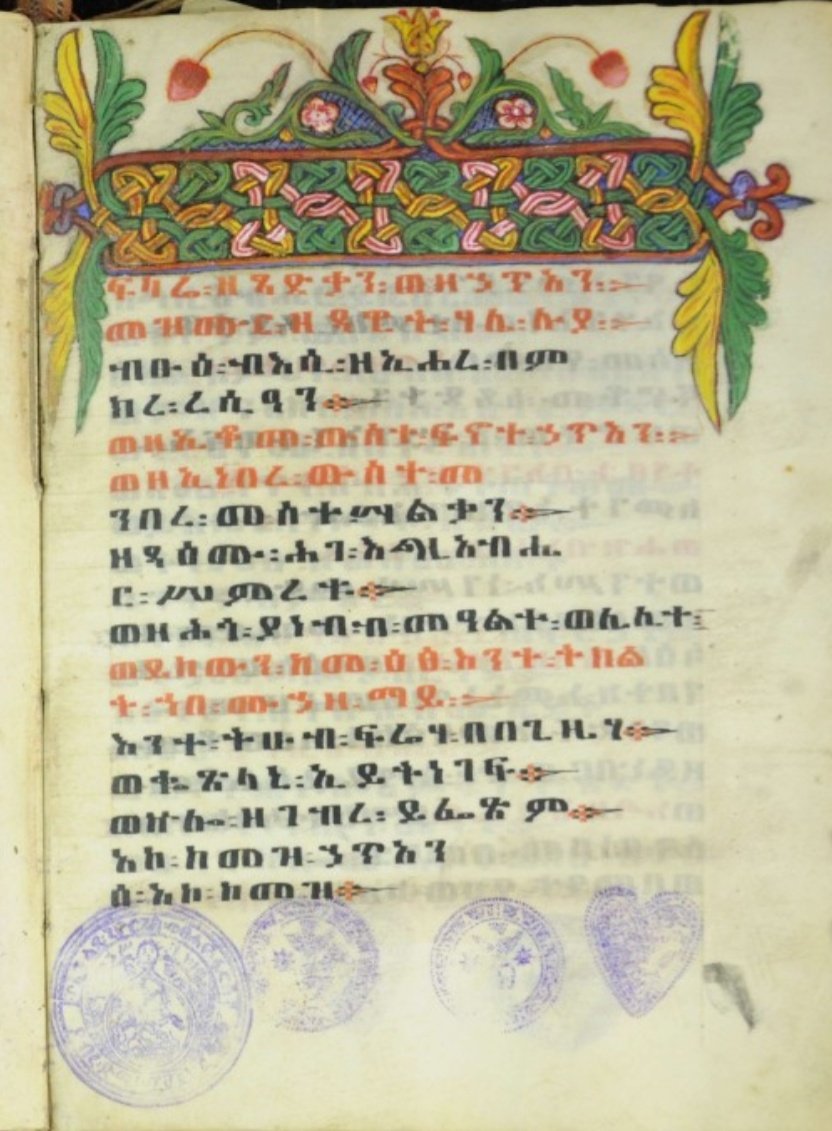 ፍካሬ፡ዘጻድቃን፡ወዘኃጥአን፡
መዝሙር፡ዘዳዊት፡ሃሌ፡ሉያ፡
ብፁዕ፡ብእሲ፡ዘኢሖረ፡በም
ክረ፡ረሲዓን፨
ወዘኢቆመ፡ውስተ፡ፍኖተ፡ኃጥአን፡
ወዘኢነበረ፡ውስተ፡መ
ንበረ፡መስተሣልቃን፨
ዘዳዕሙ፡ሕገ፡እግዚአብሔ
ር፡ሥምረቱ፨
ወዘሕጎ፡ያነብብ፡መዓልተ፡ወሌሊተ፡
ወይከውን፡ከመ፡ዕፅ፡እንተ፡ትክል
ት፡ኀበ፡ሙኃዘ፡ማይ፡
እንተ፡ትሁብ፡ፍሬሃ፡በበጊዜሃ፨
ወቈጽላኒ፡ኢይትነገፍ፨
ወኵሎ፡ዘገብረ፡ይፌጽም፨
አኮ፡ከመዝ፡ኃጥአን
ሰ፡አኮ፡ከመዝ፨